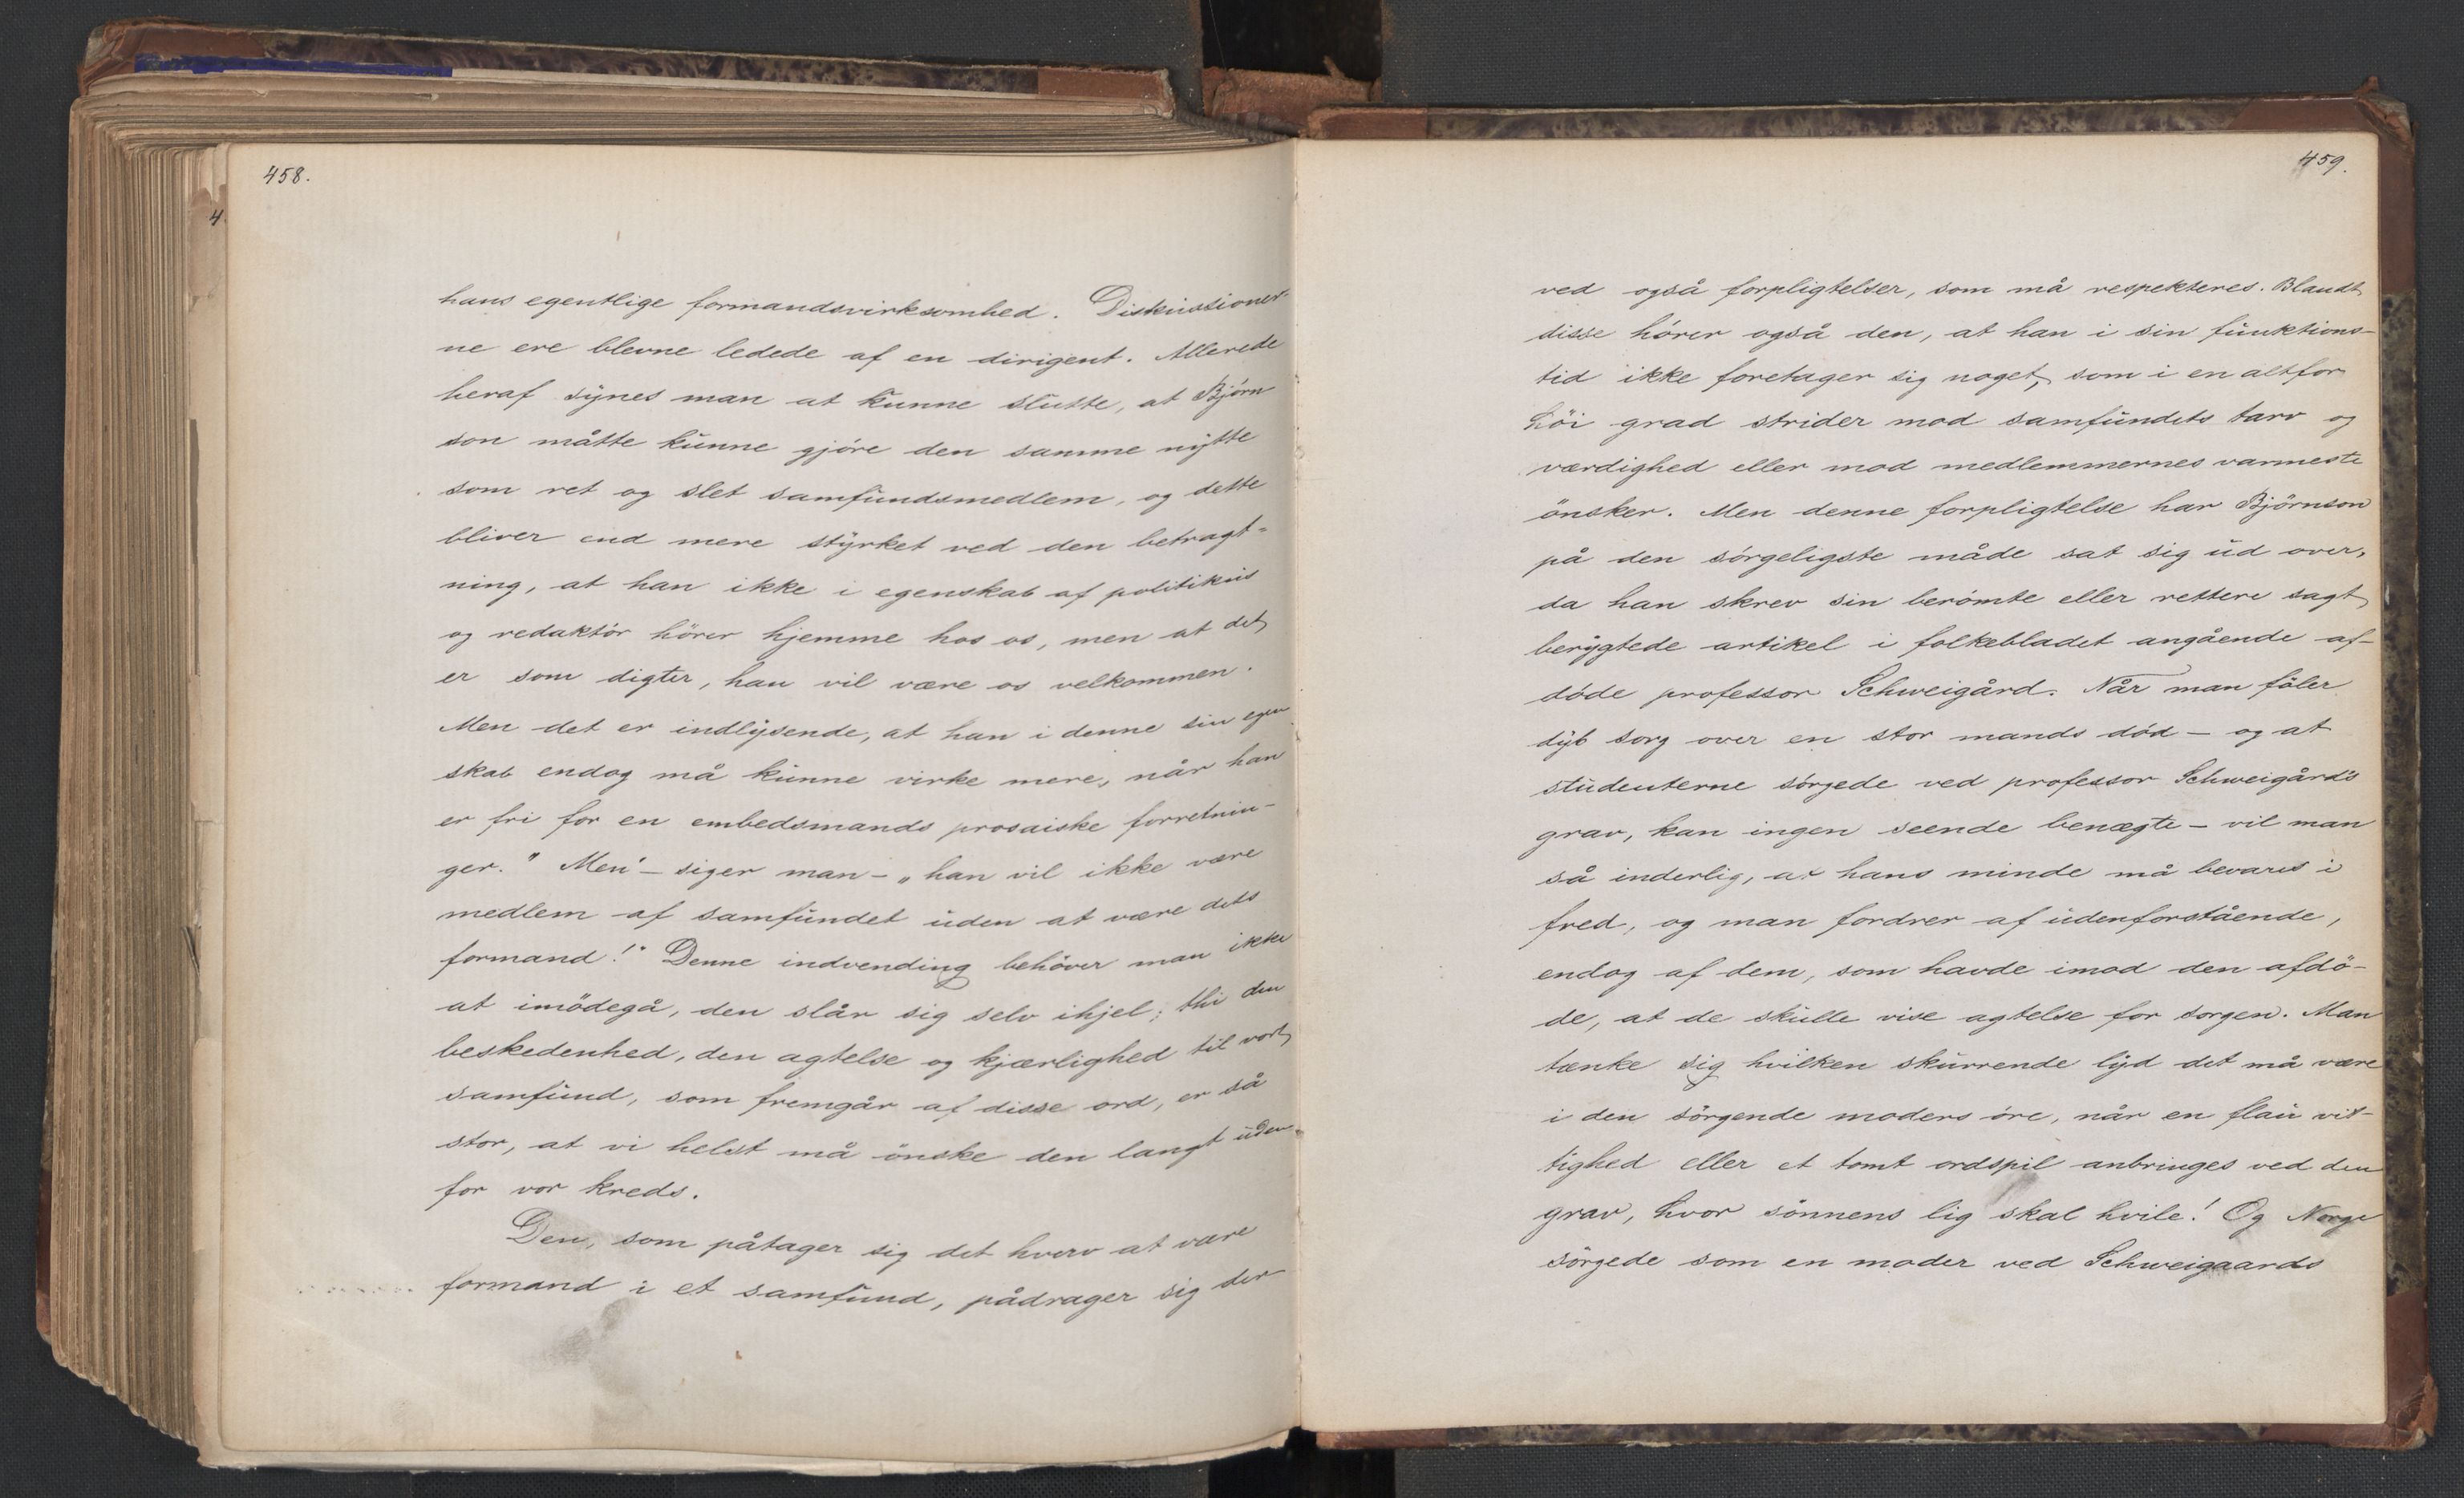 458.
hans egentlige formandsvirksomhed. Diskussioner-
ne ere blevne ledede af en dirigent. Allerede
heraf synes man at kunne slutte, at Bjørn
son måtte kunne gjöre den samme nytte
som ret og slet samfundsmedlem, og dette
bliver end mere styrket ved den betragt=
ning, at han ikke i egenskab af politikus
og redaktör hörer hjemme hos os, men at det
er som digter, han vil være os velkommen.
Men det er indlysende, at han i denne sin egen
skab endog må kunne virke mere, når han
er fri for en embedsmands prosaiske forretnin-
ger. " Men' – siger man – „han vil ikke være
medlem af samfundet uden at være dets
formand!" Denne indvending behöver man ikke
at imödegå, den slår sig selv ihjel; thi den
beskedenhed, den agtelse og kjærlighed til vort
samfund, som fremgår af disse ord, er så
stor, at vi helst må önske den langt uden=
for vor kreds.
Den, som påtager sig det hverv at være
formand i et samfund, pådrager sig der
4.
459.
ved også forpligtelser, som må respekteres. Blandt
disse hörer også den, at han i sin funktions-
tid ikke foretager sig noget, som i en altfor
höi grad strider mod samfundets tarv og
værdighed eller mod medlemmernes varmeste
önsker. Men denne forpligtelse har Björnson
på den sörgeligste måde sat sig ud over,
da han skrev sin berömte eller rettere sagt
berygtede artikel i folkebladet angående af-
döde professor Schweigård. Når man föler
dyb sorg over en stor mands död – og at
studenterne sörgede ved professor Schweigård's
grav, kan ingen seende benægte – vil man
så inderlig, at hans minde må bevares i
fred, og man fordrer af udenforstående,
endog af dem, som havde imod den afdö-
de, at de skulle vise agtelse for sorgen. Man
tænke sig hvilken skurrende lyd det må være
i den sörgende moders öre, når en flau vit-
tighed eller et tomt ordspil anbringes ved den
grav, hvor sönnens lig skal hvile! Og Norge
sörgede som en moder ved Schweigaards